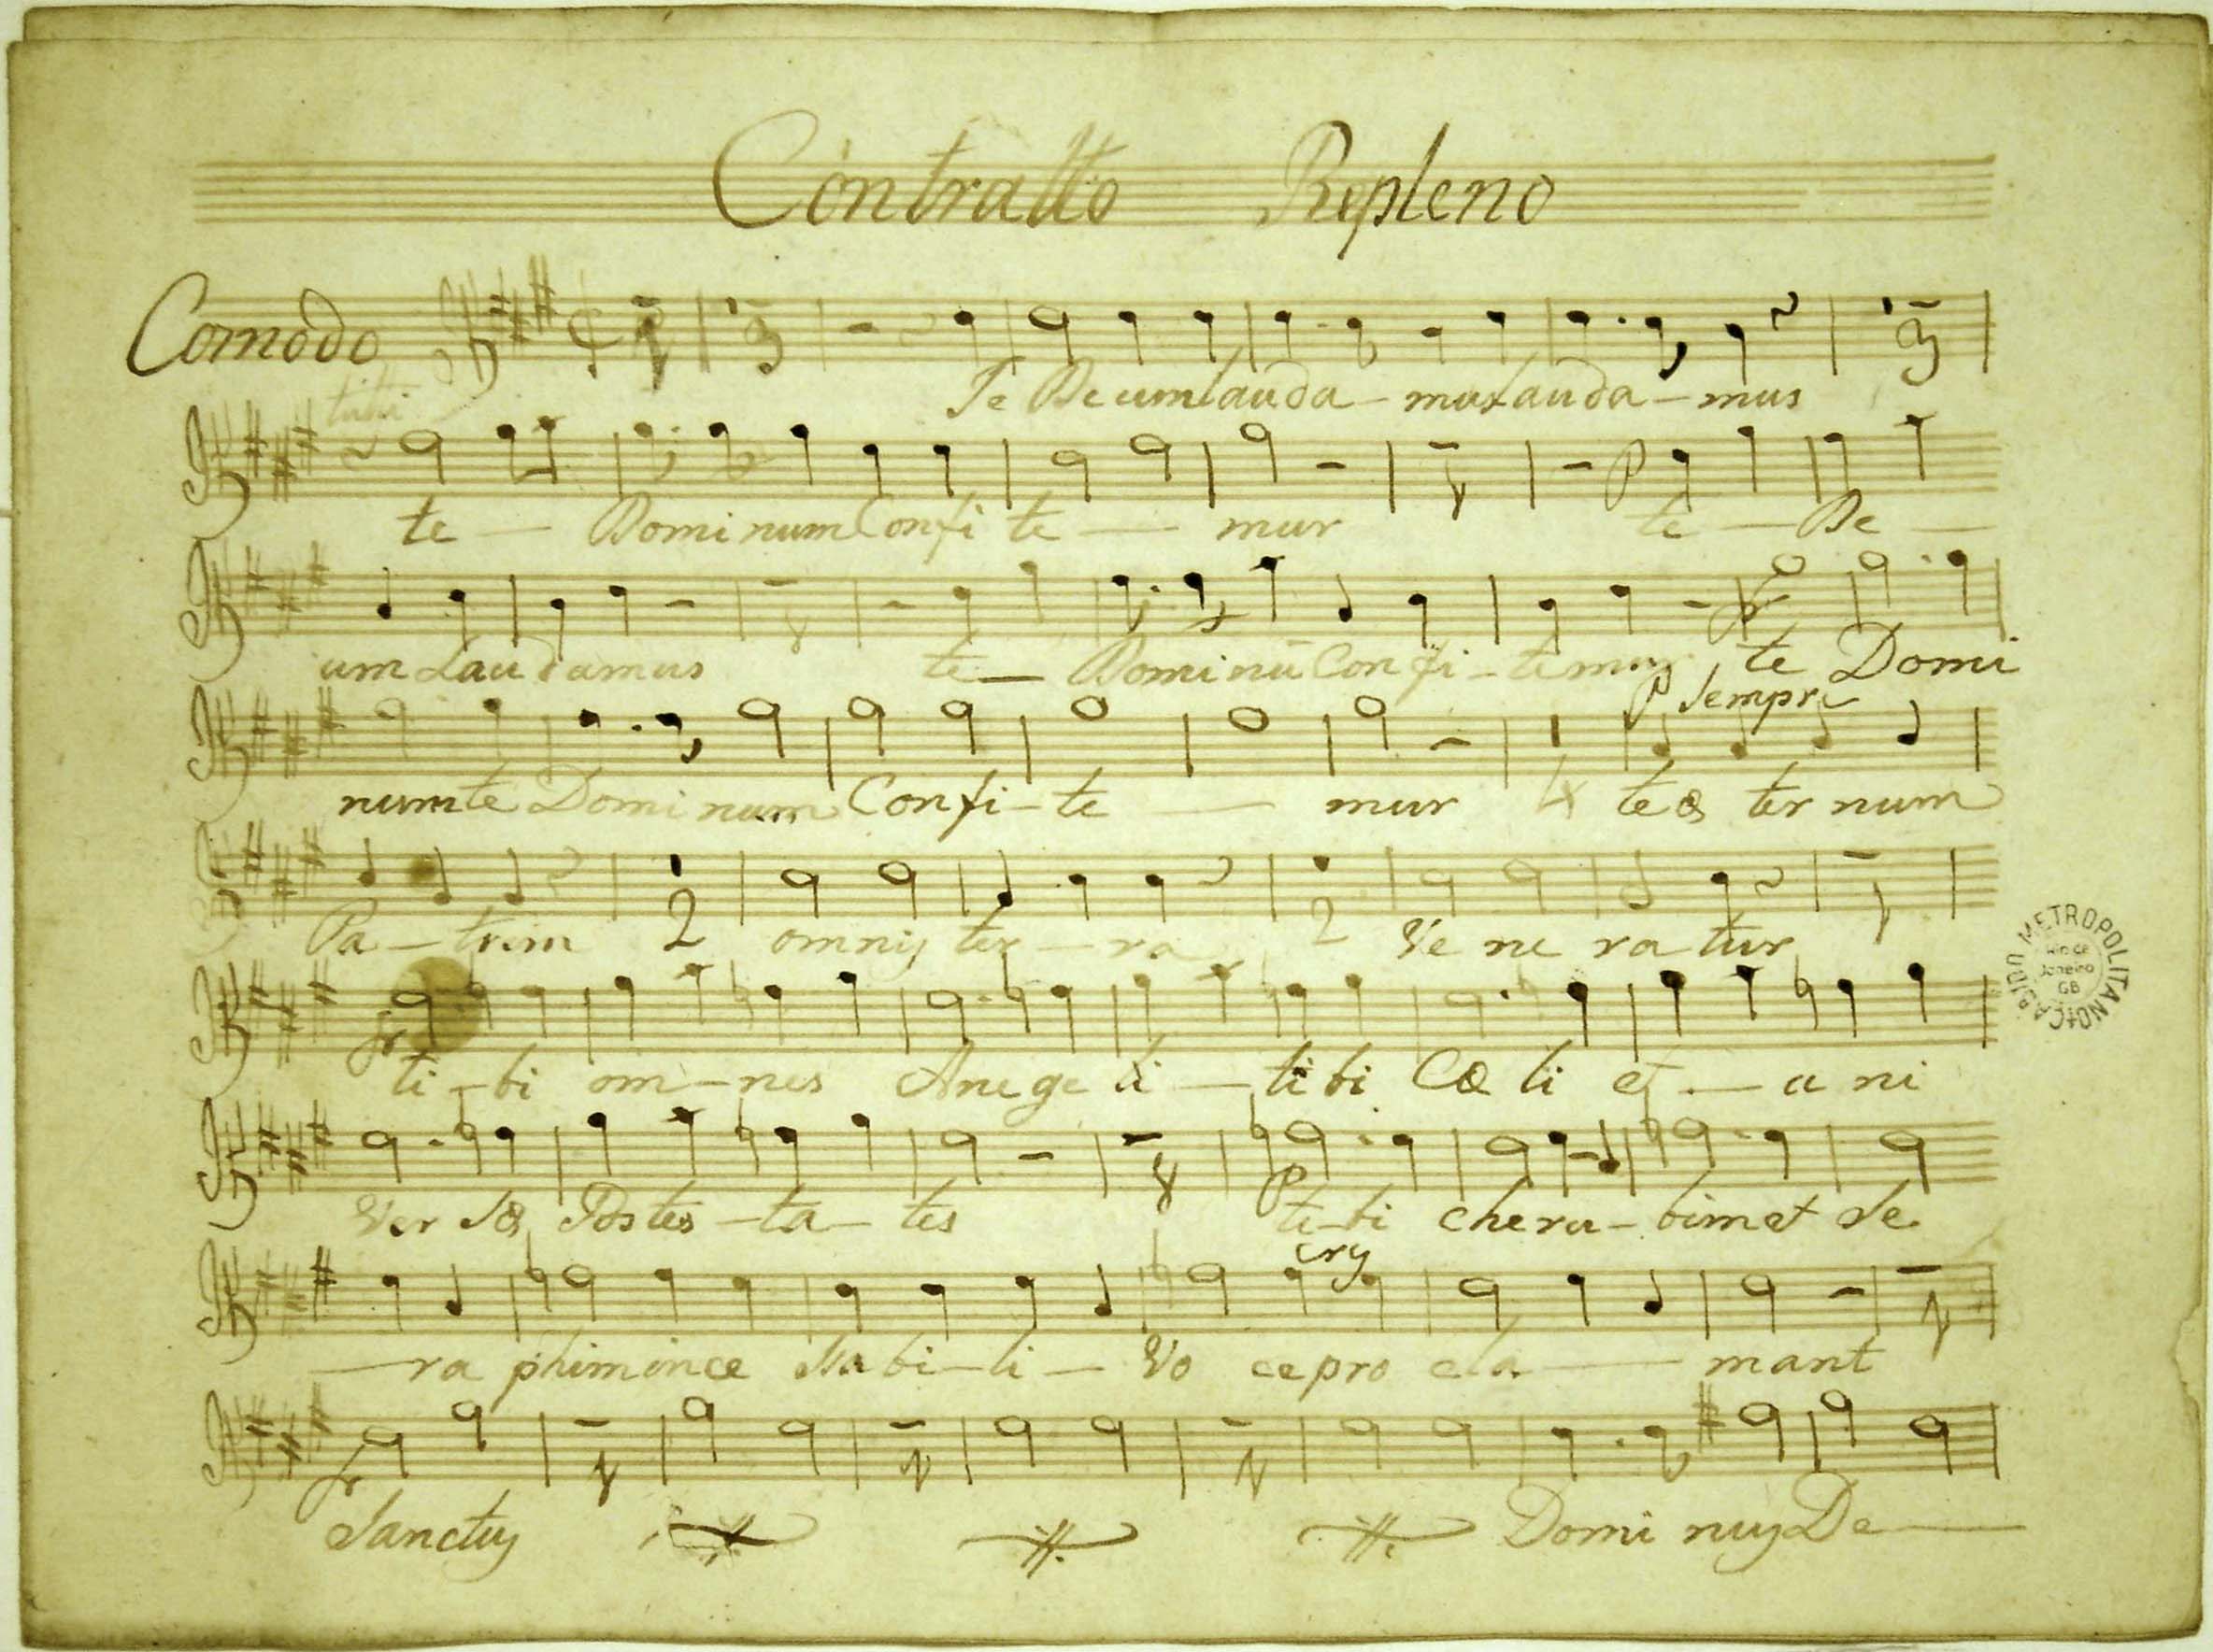 Contralto Repleno
Comodo
Te De um lauda - mus lauda - mus
tutti
te - Domi num Confi te - mur te - De -
um Lau damus te - Domi nū Con fi - temus te Domi
P Sempre
num te Domi num Confi - te - mur 4 te æ ter num
Pa - trem 2 omnis ter - ra 2 Ve ne ra tur
ti - bi om - nes Ane ge li - ti bi Cœ li et - u ni
Ver sæ Postes - ta - tes ti - bi cheru - bim et Se
- ra phim ince ssa bi - li - Vo ce pro cla - mant
Sanctus Domi nus De -
CABIDO METROPOLITANO
Rio de
Janeiro
GB